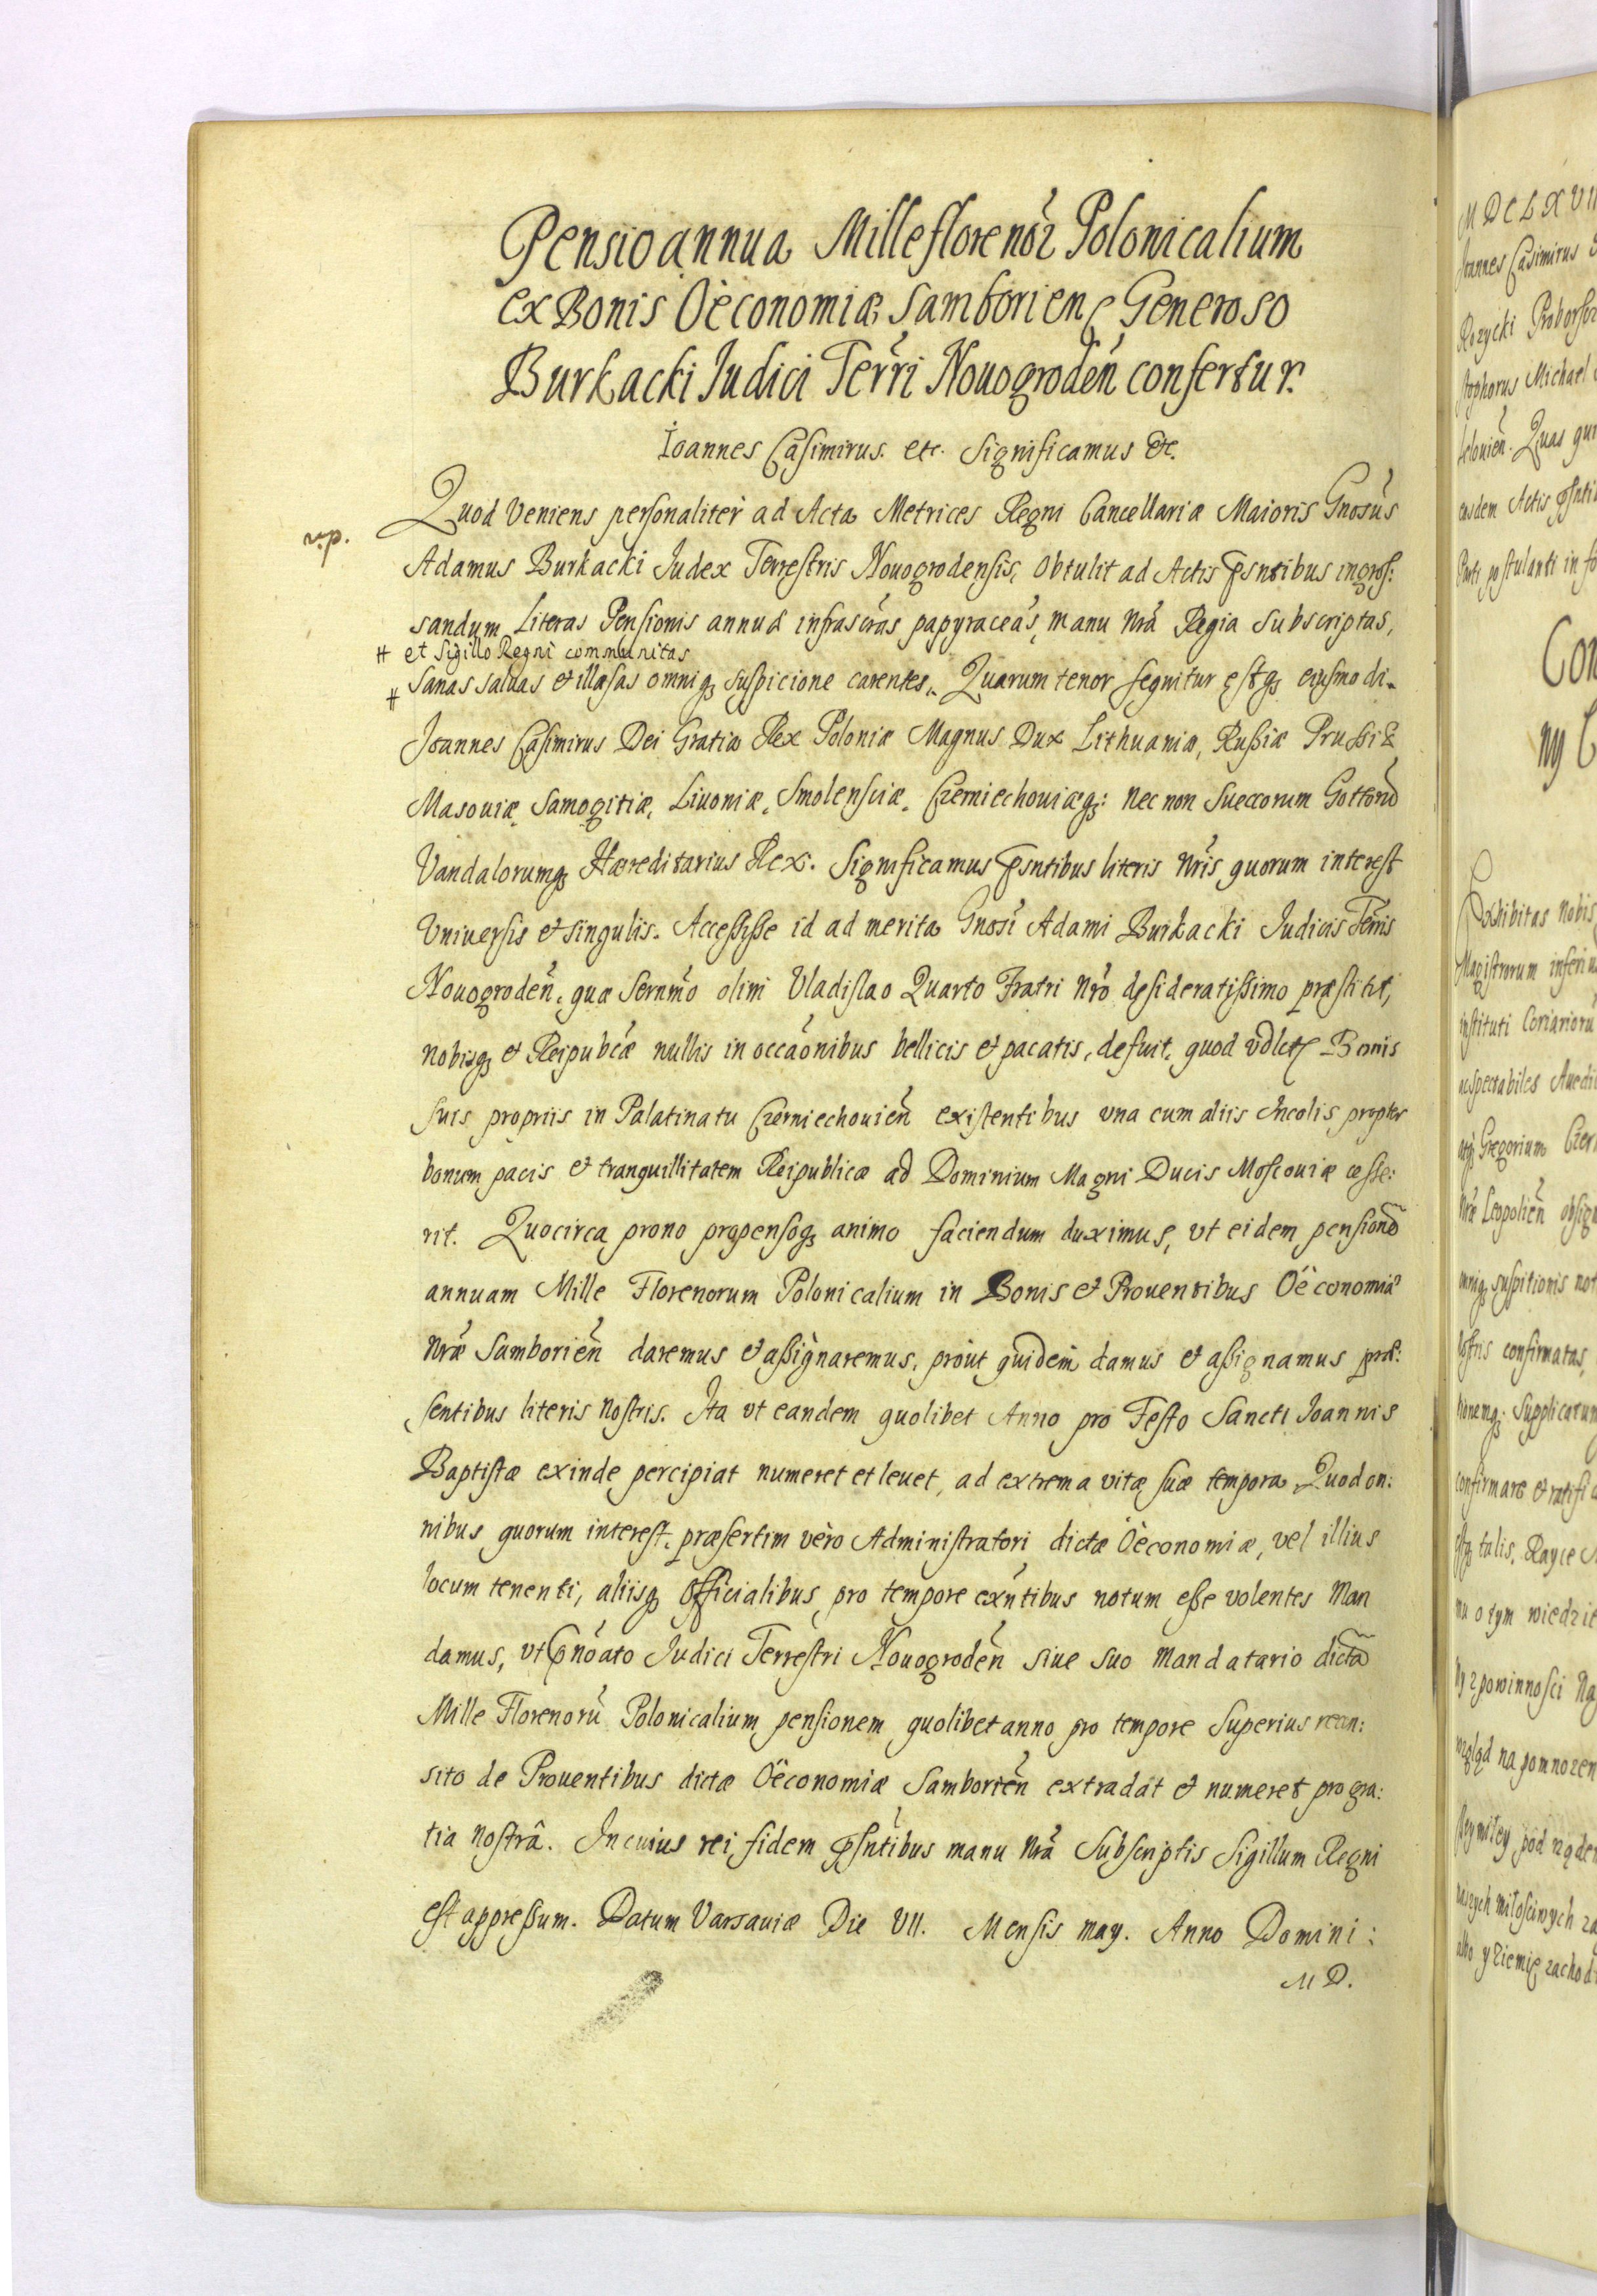 Pensio annua Mille florenor̃ Polonicalium
ex Bonis Oëconomiæ Samborien̨ Generoso
Burkacki Iudici Terr̃i Nouogroden̄ confertur.
Ioannes Casimirus. etc. Significamus etc.
Quod Veniens personaliter ad Acta Metrices Regni Cancellariæ Maioris Gnosus
rp.
Adamus Burkacki Judex Terrestris Nouogrodensis, obtulit ad Actis p̄sntibus ingros:
sandum Literas Pensionis annuæ infrascras papyraceas, manu nr̃a Regia subscriptas,
# et Sigillo Regni communitas
# Sanas saluas et illæsas omniq; suspicione carentes. Quarum tenor sequitur estq; eiusmodi.
Joannes Casimirus Dei Gratia Rex Poloniæ Magnus Dux Lithuaniæ, Rußiæ Prußiæ
Masouiæ, Samogitiæ, Liuoniæ, Smolensciæ, Czerniechouiæq;: nec non Sueccorum Gottorū
Vandalorumq; Hæreditarius Rex. Significamus p̄sntibus literis nr̃is quorum interest
Vniuersis et singulis. Acceßiße id ad merita Gnosi Adami Burkacki Judicis Terris
Nouogroden̄, quæ Sernmo olim Vladislao Quarto Fratri nr̃o desideratißimo præstitit,
nobisq; et Reipubcæ nullis in occaonibus bellicis et pacatis, defuit, quod vdlct Bonis
suis propriis in Palatinatu Czerniechouien̄ existentibus vna cum aliis Incolis propter
bonum pacis et tranquillitatem Reipublicæ ad Dominium Magni Ducis Moscouiæ ceße:
rit. Quocirca prono propensoq; animo faciendum duximus, vt eidem pensionē
annuam Mille Florenorum Polonicalium in Bonis et Prouentibus Oëconomiæ
nr̃æ Samborien̄ daremus et aßignaremus, prout quidem damus et aßignamus præ:
sentibus literis nostris. Ita vt eandem quolibet Anno pro Festo Sancti Joannis
Baptistæ exinde percipiat numeret et leuet, ad extrema vitæ suæ tempora. Quod on:
nibus quorum interest, præsertim vero Administratori dictæ Oëconomiæ, vel illius
locum tenenti, aliisq; Officialibus pro tempore exntibus notum eße volentes Man
damus, vt p̄noato Judici Terrestri Nouogroden̄ siue suo Mandatario dictā
Mille Florenorū Polonicalium pensionem quolibet anno pro tempore superius recen:
sito de Prouentibus dictæ Oëconomiæ Samborien̄ extradat et numeret pro gra:
tia nostrâ. In cuius rei fidem p̄sntibus manu nr̃a Subscriptis Sigillum Regni
est appreßum. Datum Varsauiæ Die VII. Mensis may. Anno Domini:
MD.